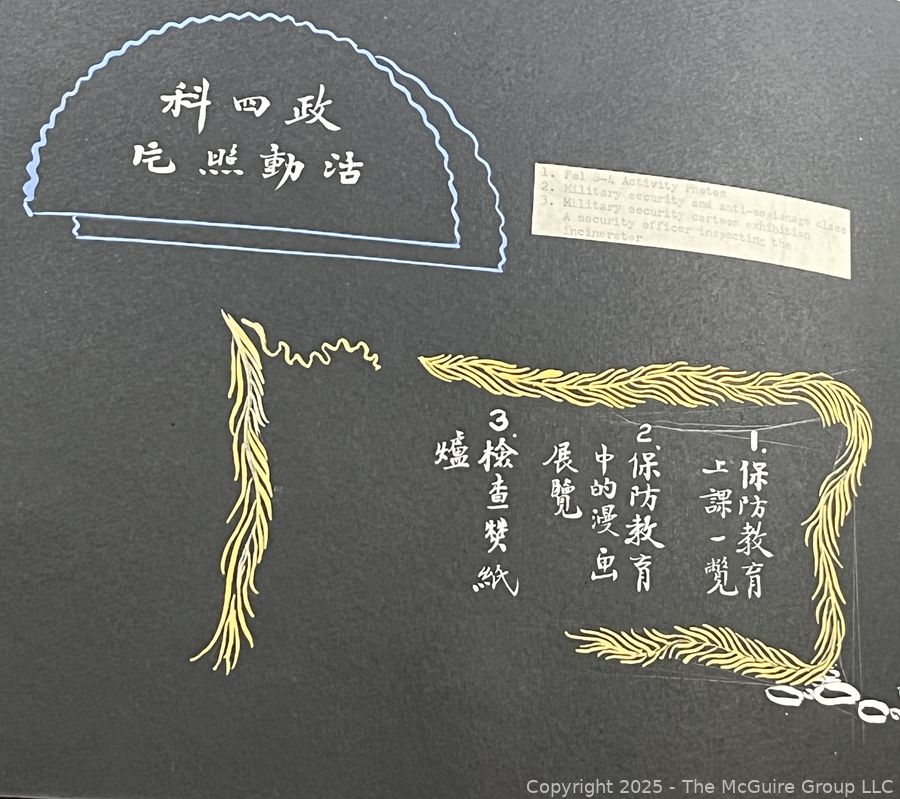 政四科
活動照片
1. Pol S-4 Activity Photos
2. Military security and anti-espionage class
3. Military security cartoon exhibition
A security officer inspecting the
incinerator
1.保防教育
上課一覽
2.保防教育
中的漫画
展覽
3.檢查焚紙
爐
Copyright 2025 - The McGuire Group LLC